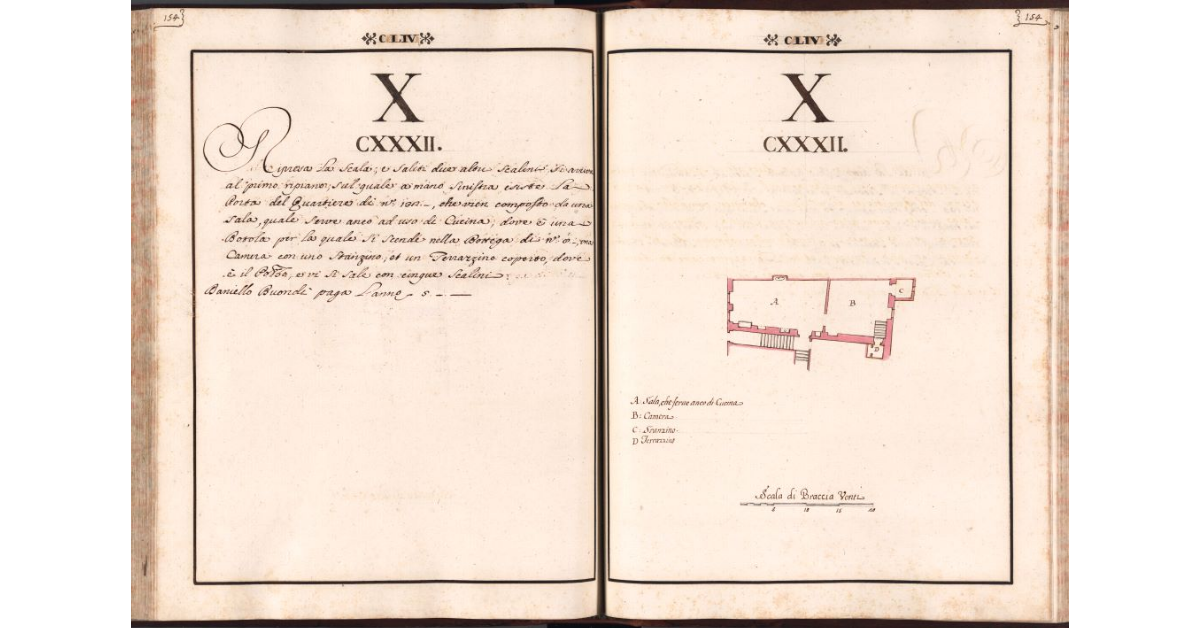 154
CLIV
X
CXXXII.
Ripresa la scala; e saliti due altri scalini si arriva
al primo ripiano; sul quale a mano sinistra esiste la
Porta del Quartiere di n.º, che vien composto da una
Sala, quale serve anco ad uso di Cucina, dove è una
Botola per la quale si scende nella Bottega di n.º una
Camera con uno Stanzino; et un Terrazzino coperto, dove
è il Pozzo, e vi si sale con cinque Scalini
Daniello Buondì paga l'anno
154
CLIV
X
CXXXII.
A
B
C
D
A Sala, che serve anco di Cucina
B: Camera
C Stanzino
D Terrazzino
Scala di Braccia Venti
5 10 15 20